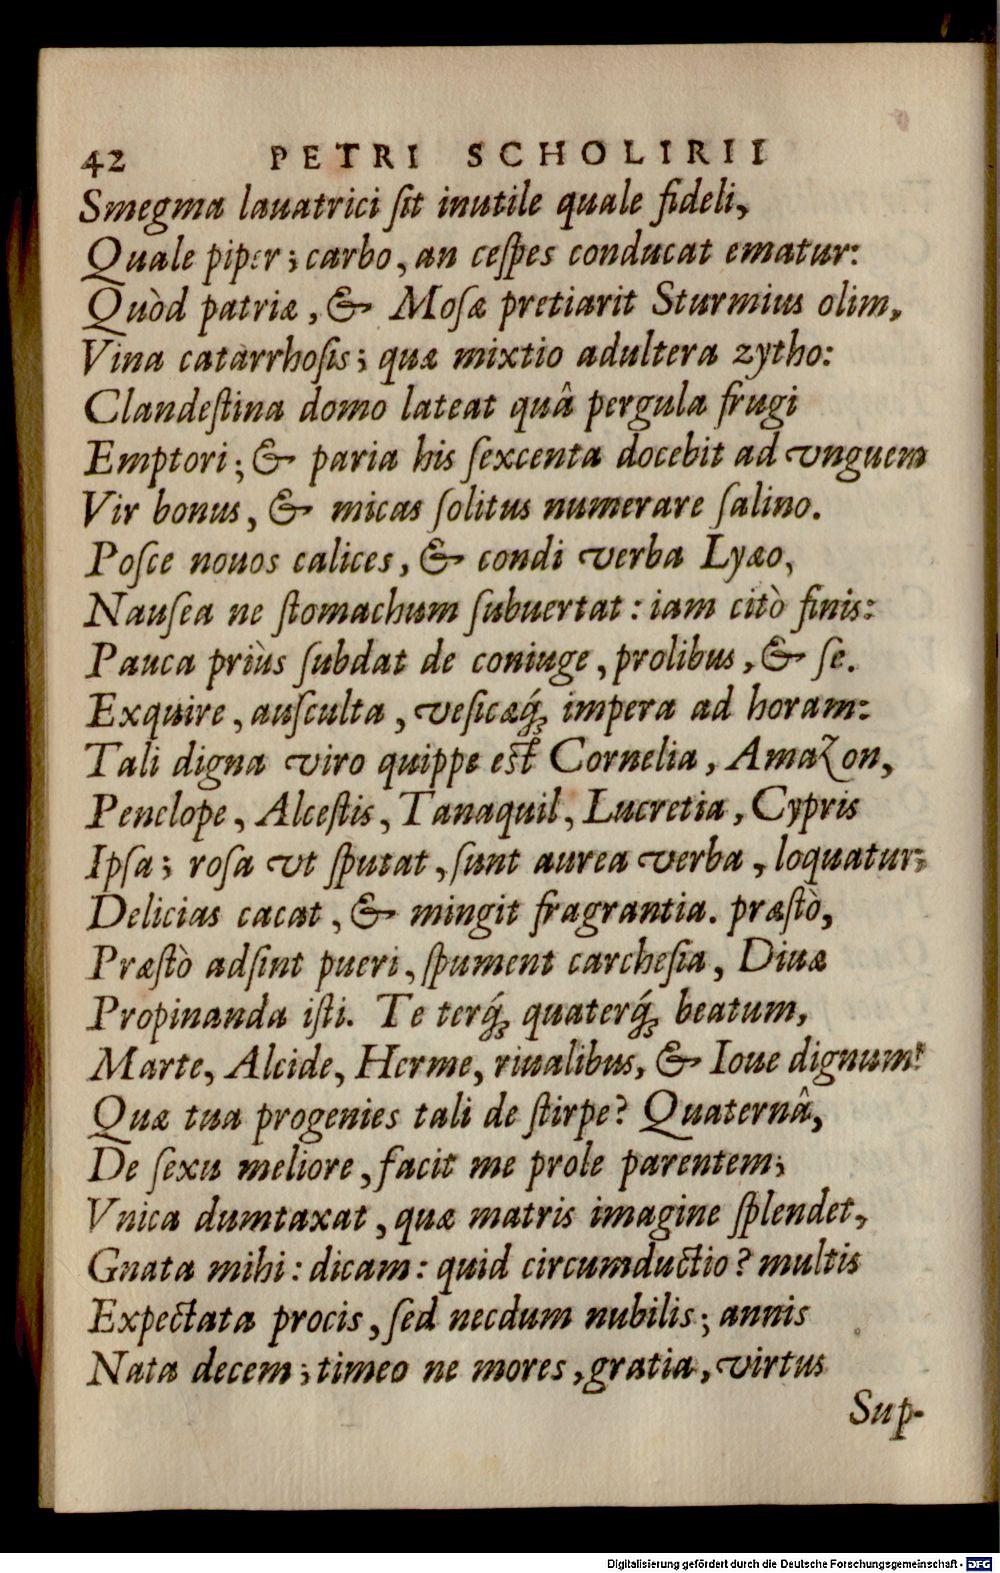 42 PETRI SCHOLIRII
Smegma lauatrici ſit inutile quale fideli,
Quale piper; carbo, an ceſpes conducat ematur:
Quòd patriæ, & Moſæ pretiarit Sturmius olim,
Vina catàrrhoſis; quæ mixtio adultera zytho:
Clandeſtina domo lateat quâ pergula frugi
Emptori; & paria his ſexcenta docebit ad vnguem
Vir bonus, & micas ſolitus numerare ſalino.
Poſce nouos calices, & condi verba Lyæo,
Nauſea ne ſtomachum ſubuertat: iam citò finis:
Pauca priùs ſubdat de coniuge, prolibus, & ſe.
Exquire, auſculta, veſicæq́; impera ad horam:
Tali digna viro quippe eſt Cornelia, Amazon,
Penelope, Alceſtis, Tanaquil, Lucretia, Cypris
Ipſa; roſa vt ſputat, ſunt aurea verba, loquatur;
Delicias cacat, & mingit fragrantia. præſtò,
Præſtò adſint pueri, ſpument carcheſia, Diuæ
Propinanda iſti. Te terq́; quaterq́; beatum,
Marte, Alcide, Herme, riualibus, & Ioue dignum!
Quæ tua progenies tali de ſtirpe? Quaternâ,
De ſexu meliore, facit me prole parentem;
Vnica dumtaxat, quæ matris imagine ſplendet,
Gnata mihi: dicam: quid circumductio? multis
Expectata procis, ſed necdum nubilis; annis
Nata decem; timeo ne mores, gratia, virtus
Sup-
Digitalisierung gefördert durch die Deutsche Forschungsgemeinschaft - DFG